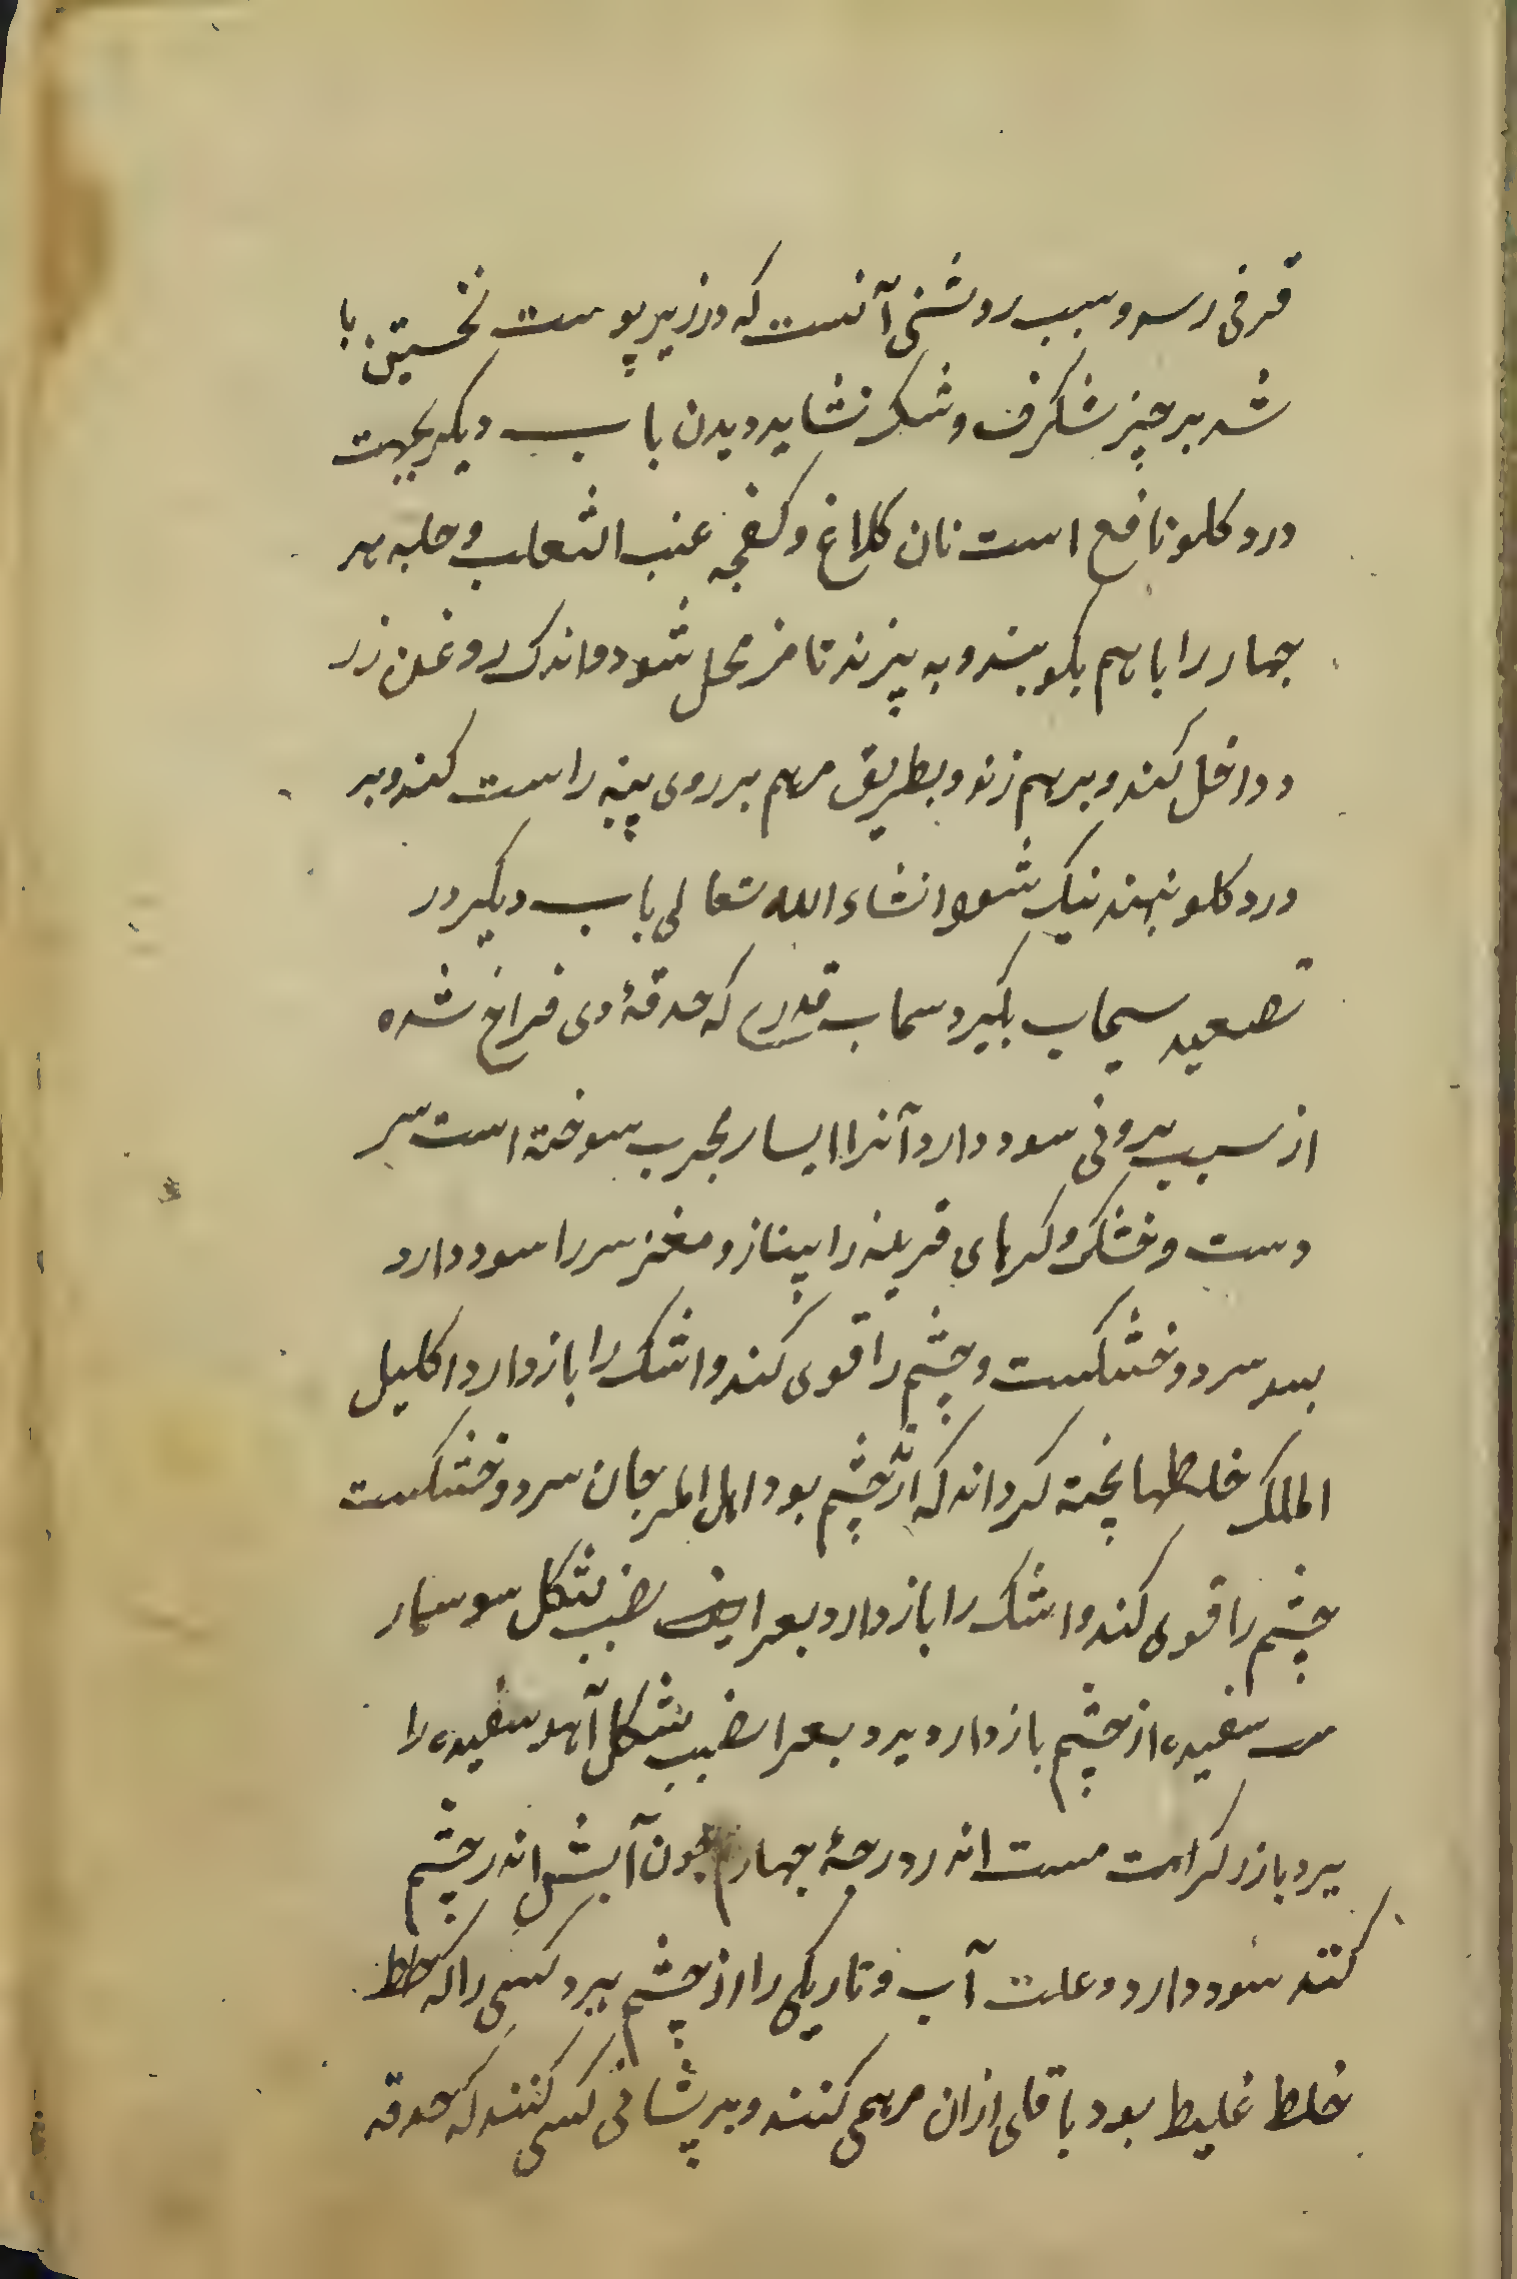 قرنی رسد و سبب روشنی آنست که در زیر پوست نخستین با
شد بر چیز شکرف و شک نشاید دیدن باب دیکر بجهت
درد کلو نافع است نان کلاغ و کفچه عنب الثعلب و حلبه هر
چهار را باهم بکوبند و به پزند تا مزمحل شود و اندک روغن زر
د داخل کند و برهم زند و بطریق مرهم بر روی پنبه راست کند و بر
درد کلو نهند نیک شود انشاء الله تعالی باب دیکر در
تصعید سیماب بکیرد سماب قدری که حدقهٔ وی فراخ شده
از سبب بیرونی سود دارد آنرا ایسار مجرب سوخته است سر
دست و خشک و کرمای قرینه را بپنازد مغز سر را سود دارد
بسد سرد و خشکست و چشم را قوی کند و اشک را باز دارد اکلیل
الملک خلطها پخته کرداند که از چشم بود اصل المرجان سرد و خشکست
چشم را قوی کند و اشک را باز دارد بعر ایضب بشکل سوسمار
سفیده از چشم باز دارد ببرد بعر الضب بشکل آهو سفیده را
ببرد بازد کرامت مست اندر درجهٔ چهارم چون آبش اندر چشم
کنند سود دارد و علت آب و تاریکی را از چشم ببرد کسی را که خلط
خلط غلیط بود باقلی ازان مرهمی کنند و بر پشانی کسی کنند که حدقه